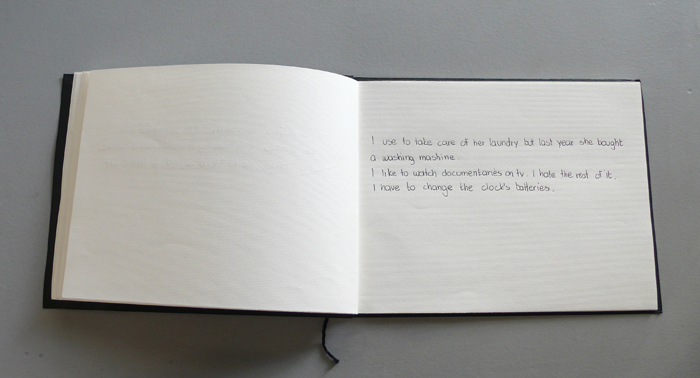 I use to take care of her laundry but last year she bought
a washing mashine.
I like to watch documentaries on tv. I hate the rest of it.
I have to change the clock's batteries.